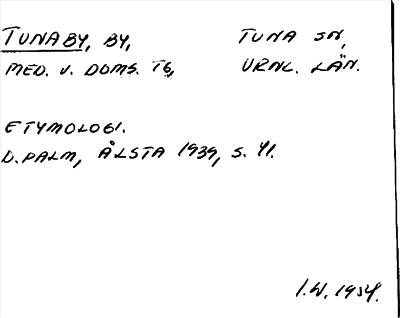 TUNABY, BY, TUNA SN,
MED. V. DOMS. TG, VRNL. LÄN.
ETYMOLOGI.
D. PALM, ÅLSTA 1939, S. 41.
I.W. 1954.